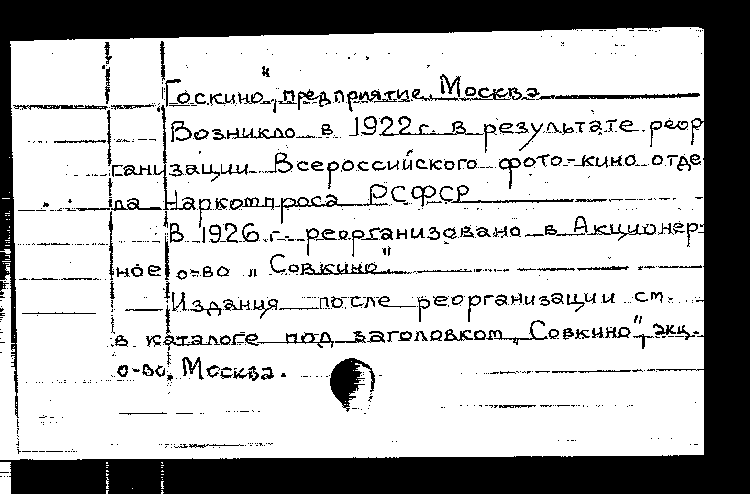 Госкино", предприятие, Москва
Возникло в 1922 г. в результате реор-
ганизации Всероссийского фото-кино отде-
ла Наркомпроса РСФСР
В 1926 г. реорганизовано в Акционер-
ное о-во „Совкино"
Издания после реорганизации см.
в каталоге под заголовком „Совкино", акц.
о-во. Москва.